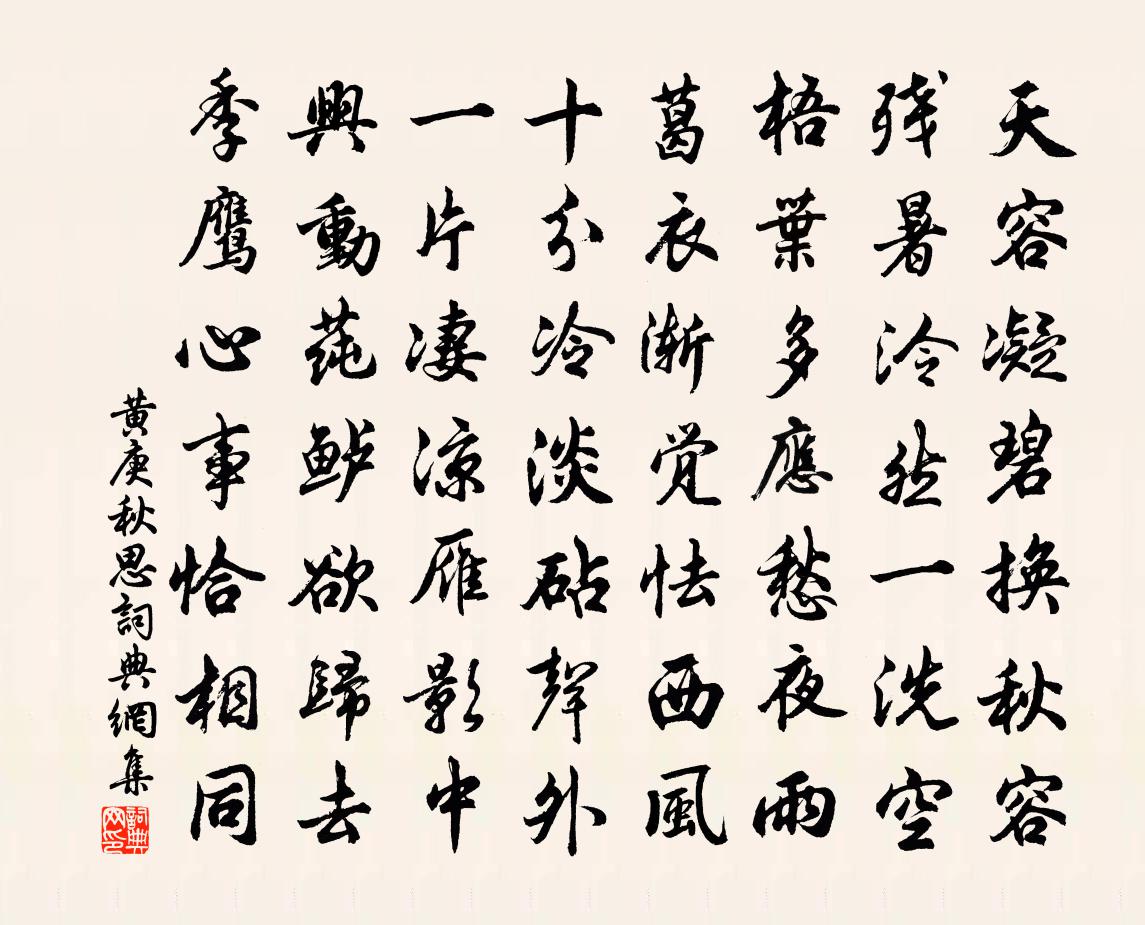 天容凝碧換秋容
残暑泠然一洗空
梧葉多應愁夜雨
葛衣漸覺怯西風
十分冷淡砧聲外
一片凄涼雁影中
興動莼鲈欲歸去
季鹰心事恰相同
黄庚秋思詞典網集
詞典网印